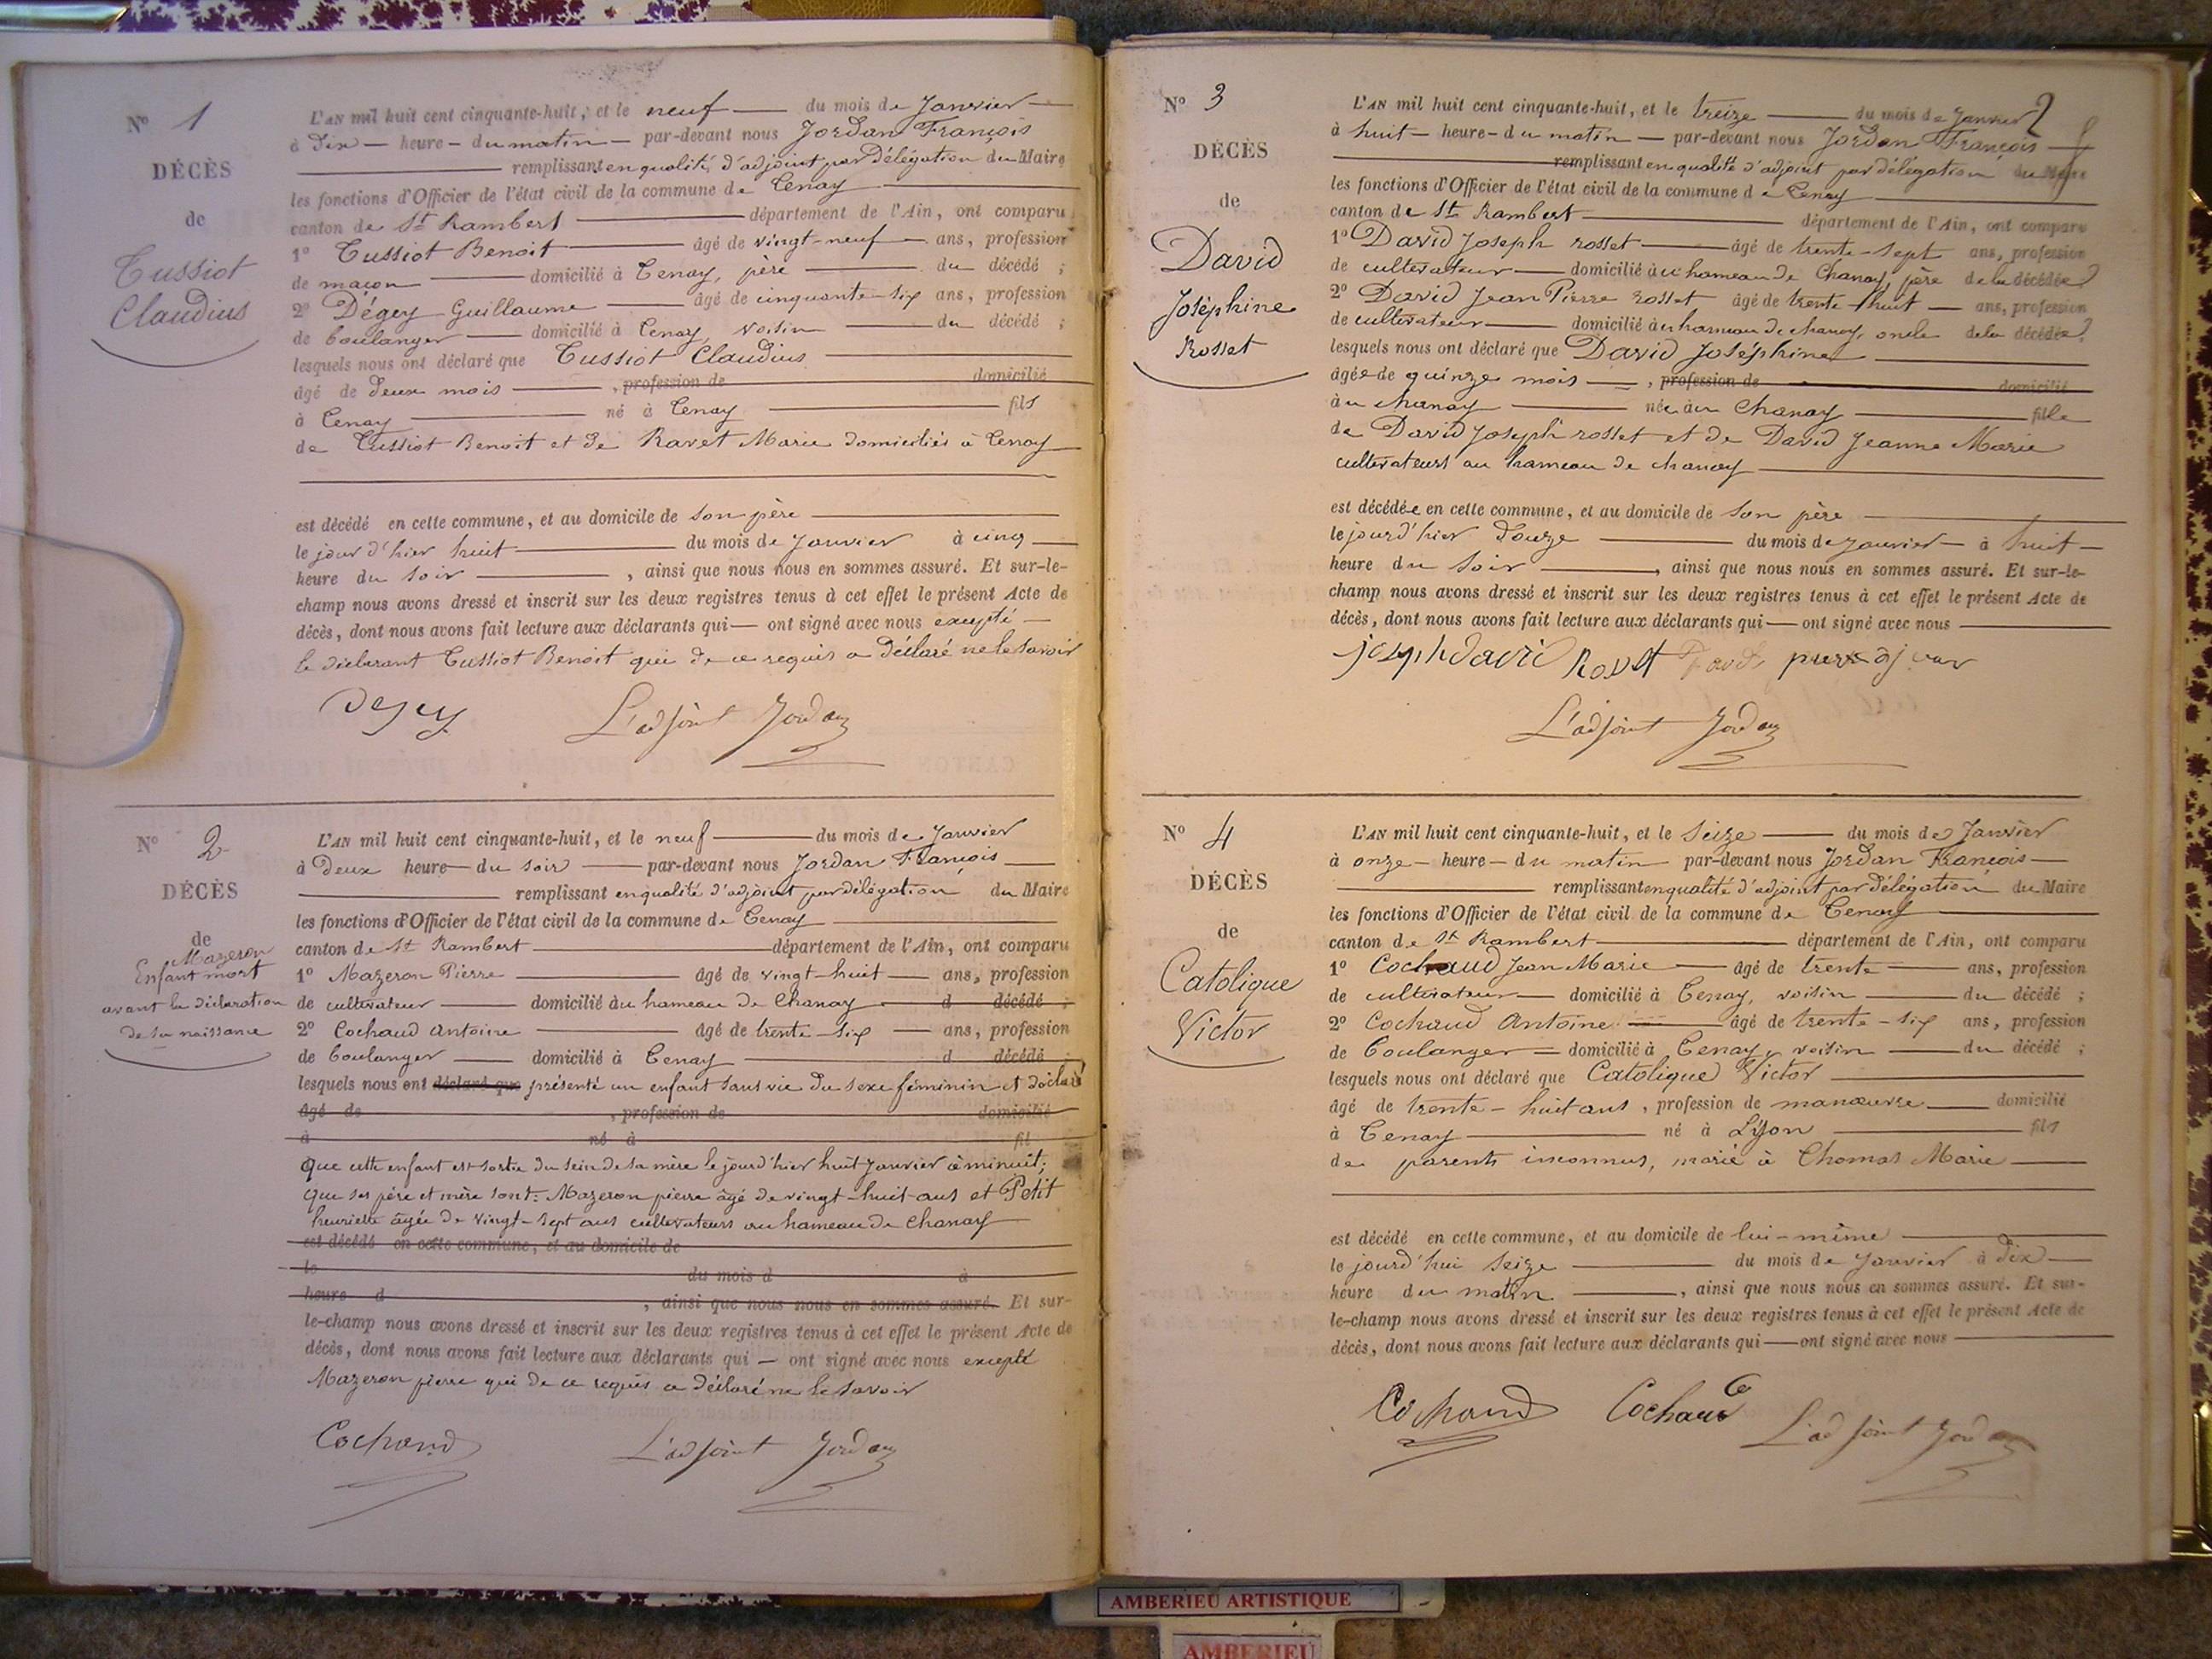 N° 1
DÉCÈS
de
Tussiot
Claudius
L'AN mil huit cent cinquante-huit, et le neuf du mois de Janvier
à dix heure du matin par-devant nous Jordan François
remplissant en qualité d'adjoint par Délégation du Maire
les fonctions d'Officier de l'état civil de la commune de Tenay
canton de St Rambert département de l'Ain, ont comparu
1° Tussiot Benoit âgé de vingt-neuf ans, profession
de maçon domicilié à Tenay, père du décédé ;
2° Dégey Guillaume âgé de cinquante-six ans, profession
de boulanger domicilié à Tenay, voisin du décédé ;
lesquels nous ont déclaré que Tussiot Claudius
âgé de deux mois , profession de domicilié
à Tenay né à Tenay fils
de Tussiot Benoit et de Ravet Marie domiciliés à Tenay
est décédé en cette commune, et au domicile de son père
le jour d'hier huit du mois de Janvier à cinq
heure du soir , ainsi que nous nous en sommes assuré. Et sur-le-
champ nous avons dressé et inscrit sur les deux registres tenus à cet effet le présent Acte de
décès, dont nous avons fait lecture aux déclarants qui ont signé avec nous excepté
le déclarant Tussiot Benoit qui de ce requis a déclaré ne le savoir
Degey L'adjoint Jordan
N° 2
DÉCÈS
de
Mazeron
Enfant mort
avant la déclaration
de sa naissance
L'AN mil huit cent cinquante-huit, et le neuf du mois de Janvier
à Deux heure du soir par-devant nous Jordan François
remplissant en qualité d'adjoint par délégation du Maire
les fonctions d'Officier de l'état civil de la commune de Tenay
canton de St Rambert département de l'Ain, ont comparu
1° Mazeron Pierre âgé de vingt-huit ans, profession
de cultivateur domicilié au hameau de Chanay d décédé ;
2° Cochaud Antoine âgé de trente-six ans, profession
de boulanger domicilié à Tenay d décédé
lesquels nous ont déclaré que présenté un enfant sans vie du sexe féminin et déclaré
âgé de , profession de domicilié
à né à fil
que cette enfant est sortie du sein de sa mère le jourd'hier huit Janvier à minuit;
que ses père et mère sont: Mazeron pierre âgé de vingt-huit ans et Petit
henriette âgée de vingt-sept ans cultivateurs au hameau de Chanay
est décédé en cette commune, et au domicile de
le du mois d à
heure d , ainsi que nous nous en sommes assuré. Et sur-
le-champ nous avons dressé et inscrit sur les deux registres tenus à cet effet le présent Acte de
décès, dont nous avons fait lecture aux déclarants qui ont signé avec nous excepté
Mazeron pierre qui de ce requis a déclaré ne le savoir
Cochaud L'adjoint Jordan
N° 3
DÉCÈS
de
David
Joséphine
Rosset
2
L'AN mil huit cent cinquante-huit, et le treize du mois de Janvier
à huit heure du matin par-devant nous Jordan François
remplissant en qualité d'adjoint par délégation du Maire
les fonctions d'Officier de l'état civil de la commune de Tenay
canton de St Rambert département de l'Ain, ont comparu
1° David Joseph rosset âgé de trente-sept ans, profession
de cultivateur domicilié au hameau de Chanay, père de la décédée
2° David Jean Pierre rosset âgé de trente-huit ans, profession
de cultivateur domicilié au hameau de chanay, oncle de la décédée
lesquels nous ont déclaré que David Joséphine
âgée de quinze mois , profession de domicilié
à au chanay née au Chanay fille
de David Joseph rosset et de David Jeanne Marie
cultivateurs au hameau de chanay
est décédée en cette commune, et au domicile de son père
le jourd'hier douze du mois de Janvier à huit
heure du soir , ainsi que nous nous en sommes assuré. Et sur-le-
champ nous avons dressé et inscrit sur les deux registres tenus à cet effet le présent Acte de
décès, dont nous avons fait lecture aux déclarants qui ont signé avec nous
joseph david
L'adjoint Jordan
N° 4
DÉCÈS
de
Catolique
Victor
L'AN mil huit cent cinquante-huit, et le seize du mois de Janvier
à onze heure du matin par-devant nous Jordan François
remplissant en qualité d'adjoint par délégation du Maire
les fonctions d'Officier de l'état civil de la commune de Tenay
canton de St Rambert département de l'Ain, ont comparu
1° Cochaud Jean Marie âgé de trente ans, profession
de cultivateur domicilié à Tenay, voisin du décédé ;
2° Cochaud Antoine âgé de trente-six ans, profession
de boulanger domicilié à Tenay, voisin du décédé ;
lesquels nous ont déclaré que Catolique Victor
âgé de trente-huit ans , profession de manœuvre domicilié
à Tenay né à Lyon fils
de parents inconnus, marié à Thomas Marie
est décédé en cette commune, et au domicile de lui-même
le jourd'hui seize du mois de Janvier à dix
heure du matin , ainsi que nous nous en sommes assuré. Et sur-
le-champ nous avons dressé et inscrit sur les deux registres tenus à cet effet le présent Acte de
décès, dont nous avons fait lecture aux déclarants qui ont signé avec nous
Cochaud Cochaud L'adjoint Jordan
AMBERIEU ARTISTIQUE
AMBERIEU